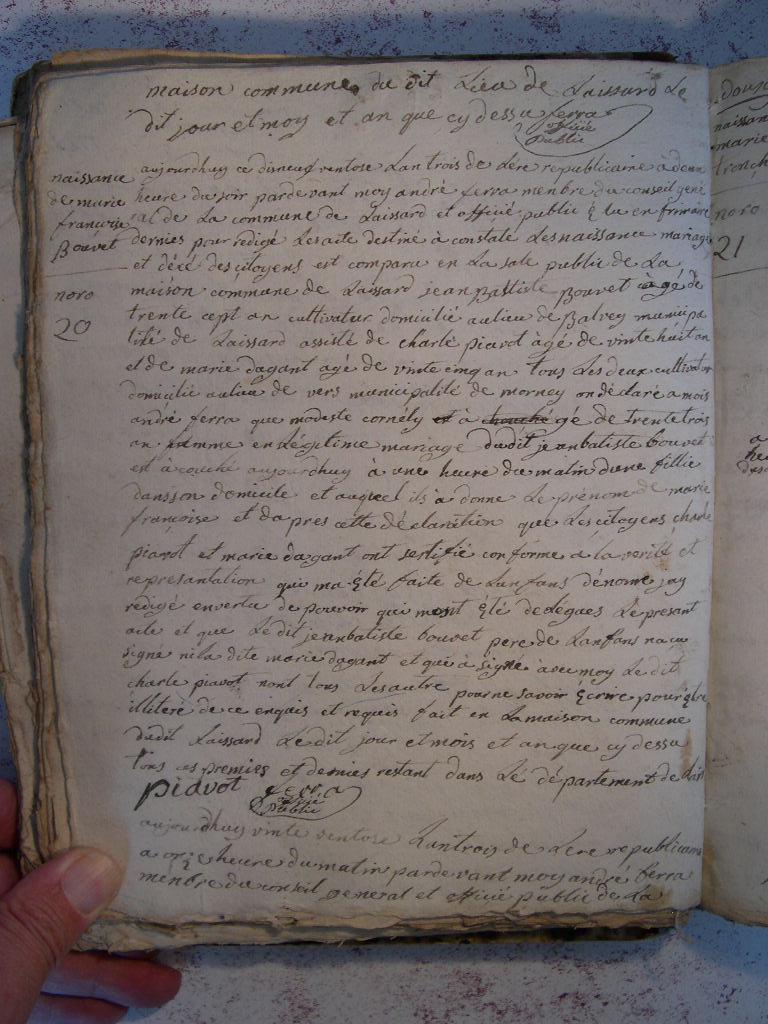 maison commune du dit Lieu de Laissard Le
dit jour et moy et an que cy dessu ferra
officié
public
naissance
de marie
francoise
Bouvet
noro
20
aujourdhuy ce disneuf ventose Lan trois de Lere republicaine à deux
heure du soir pardevant moy andré ferra menbre du conseil gené
ral de La commune de Laissard et officié public Elu en frimaire
dernies pour redigé Les acte destiné à constaté Les naissance mariage
et décé des citoyens est comparu en La sale public de La
maison commune de Laissard jean Battiste Bouvet àgé de
trente cept an cultivateur domicilié au lieu de Balvey municipa
lité de Laissard assisté de charle piavot àgé de vinte huit an
et de marie dagant agé de vinte cinq an tous Les deux cultivateur
domicilié au lieu de vers municipalité de morney on déclaré a mois
andré ferra que modeste cornély et à chouché gé de trente trois
an famme en Légitime mariage dudit jeanbatiste bouvet
est à couché aujourdhuy à une heure du matin dune fillie
dansson domicile et auquel ils à donne Le prénom de marie
francoise et da pres cette déclaration que Les citoyens charle
piavot et marie dagant ont sertifié conforme a la verité et
represantation qui ma Eté faite de Lanfans dénome jay
rédigé envertu de pouvoir qui mont Eté dedégues Le presant
acte et que Le dit jeanbatiste bouvet pere de Lanfans na cu
signé ni la dite marie dagant et qui à signé avec moy Le dit
charle piavot nont tous Les autre pour ne savoir Ecrire pour Etre
illiteré de ce enquis et requis fait en La maison commune
dudit Laissard Le dit jour et mois et an que cy dessu
tous ces premies et dernies restant dans Le département de Lain
piavot ferra
officié
public
aujourdhuy vinte ventose Lan trois de Lere republicaine
a onze heure du matin pardevant moy andré ferra
menbre du conseil general et officié public de La
noro
21